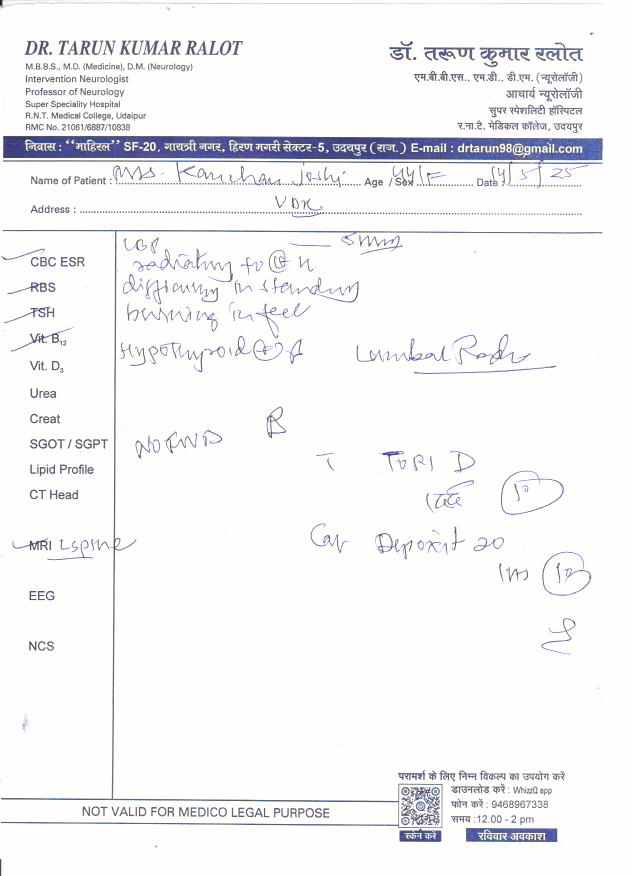 DR. TARUN KUMAR RALOT
M.B.B.S., M.D. (Medicine), D.M. (Neurology)
Intervention Neurologist
Professor of Neurology
Super Speciality Hospital
R.N.T. Medical College, Udaipur
RMC No. 21061/6887/10838
डॉ. तरूण कुमार रलोत
एम.बी.बी.एस., एम.डी., डी.एम. (न्यूरोलॉजी)
आचार्य न्यूरोलॉजी
सुपर स्पेशलिटी हॉस्पिटल
र.ना.टै. मेडिकल कॉलेज, उदयपुर
निवास : "माहिरल" SF-20, गायत्री नगर, हिरण मगरी सेक्टर-5, उदयपुर (राज.) E-mail : drtarun98@gmail.com
Name of Patient : Mrs. Kanchan Joshi Age / Sex 44/F Date : 14/5/25
Address : UDR
CBC ESR
RBS
TSH
Vit. B12
Vit. D3
Urea
Creat
SGOT / SGPT
Lipid Profile
CT Head
MRI Lspine
EEG
NCS
LBP
radiating to
difficulty in standing
burning in feet
Hypothyroid (+)
Lumbar Radi
NO FND
T TORI D
दर्द 10
Cap Depoxit 20
1HS 10
NOT VALID FOR MEDICO LEGAL PURPOSE
परामर्श के लिए निम्न विकल्प का उपयोग करें
डाउनलोड करें : WhizzQ app
फोन करें : 9468967338
समय :12.00 - 2 pm
स्कैन करें
रविवार अवकाश